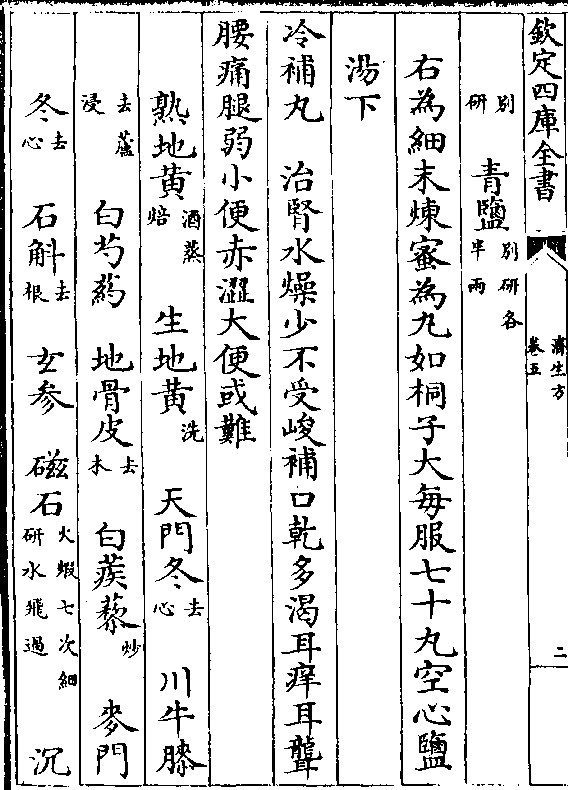 欽定四庫全書 濟生方 卷五 二
別研 青鹽 別研各半兩
右為細末煉蜜為丸如桐子大每服七十丸空心鹽
湯下
冷補丸 治腎水燥少不受峻補口乾多渴耳痒耳聾
腰痛腿弱小便赤澀大便或難
熟地黃 酒蒸焙 生地黃 洗 天門冬 去心 川牛膝
去蘆浸 白芍藥 地骨皮 去木 白蒺藜 炒 麥門
冬 去心 石斛 去根 玄参 磁石 火煆七次細研水飛過 沉